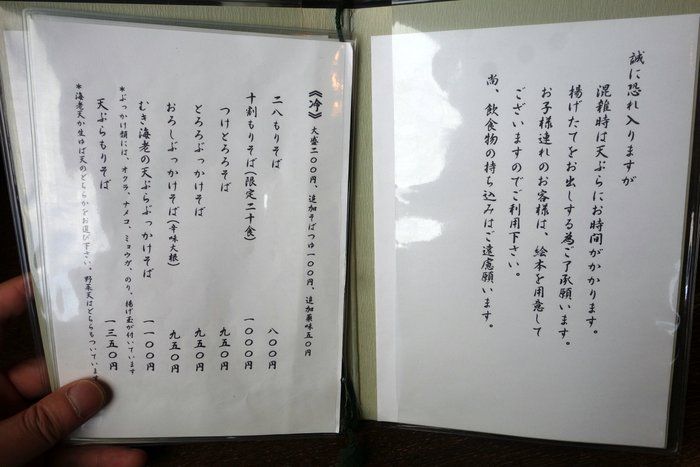 誠に恐れ入りますが
混雑時は天ぷらにお時間がかかります。
揚げたてをお出しする為ご了承願います。
お子様連れのお客様は、絵本を用意して
ございますのでご利用下さい。
尚、飲食物の持ち込みはご遠慮願います。
《冷》 大盛二〇〇円、追加そばつゆ一〇〇円、追加薬味五〇円
二八もりそば 八〇〇円
十割もりそば(限定二十食) 一〇〇〇円
つけとろろそば 九五〇円
とろろぶっかけそば 九五〇円
おろしぶっかけそば(辛味大根) 九五〇円
むき海老の天ぷらぶっかけそば 一一〇〇円
*ぶっかけ類には、オクラ、ナメコ、ミョウガ、のり、揚げ玉が付いています
天ぷらもりそば 一三五〇円
*海老天か生ゆば天のどちらかをお選び下さい。野菜天はどちらもついています